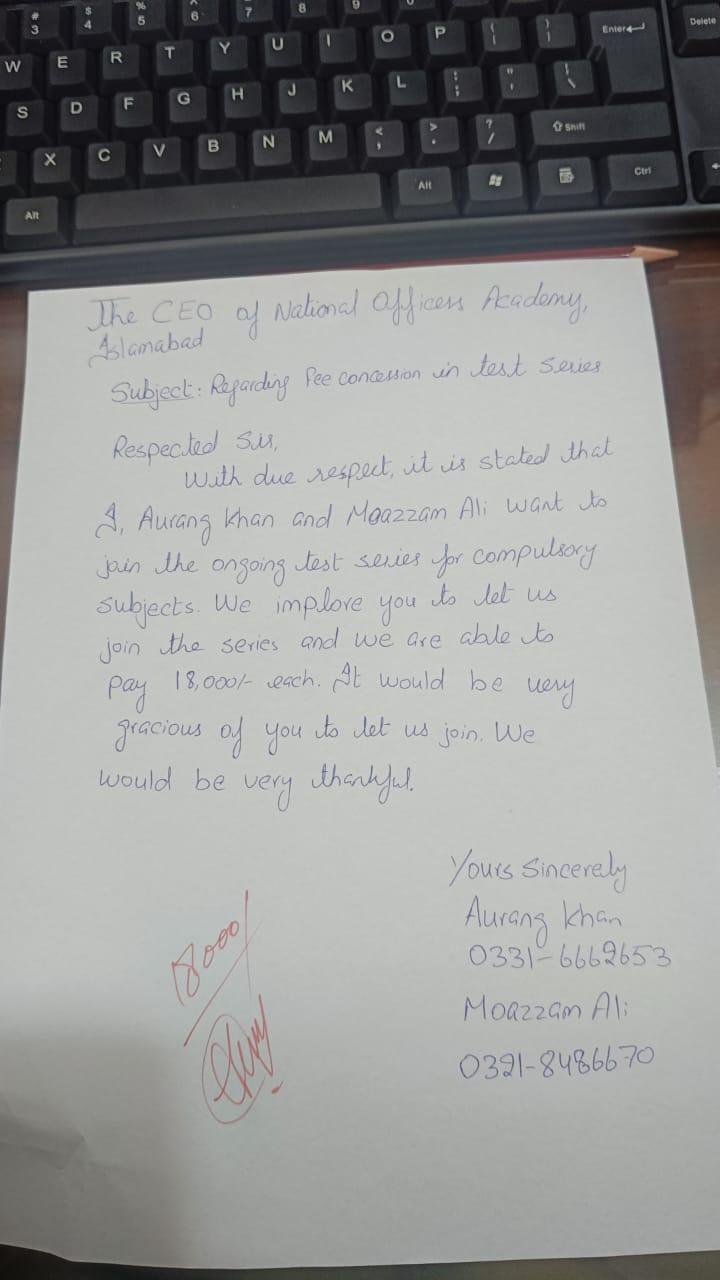 # 3
$ 4
% 5
^ 6
7
8
9
W E R T Y U I O P { [ } ] Enter Delete
S D F G H J K L : ; " ' | \
X C V B N M < , > . ? / Shift
Alt Alt Ctrl
The CEO of National Officers Academy,
Islamabad
Subject: Regarding fee concession in test series
Respected Sir,
With due respect, it is stated that
I, Aurang Khan and Moazzam Ali want to
join the ongoing test series for compulsory
subjects. We implore you to let us
join the series and we are able to
pay 18,000/- each. It would be very
gracious of you to let us join. We
would be very thankful.
Yours Sincerely
Aurang Khan
0331-6662653
Moazzam Ali
0321-8486670
18000/